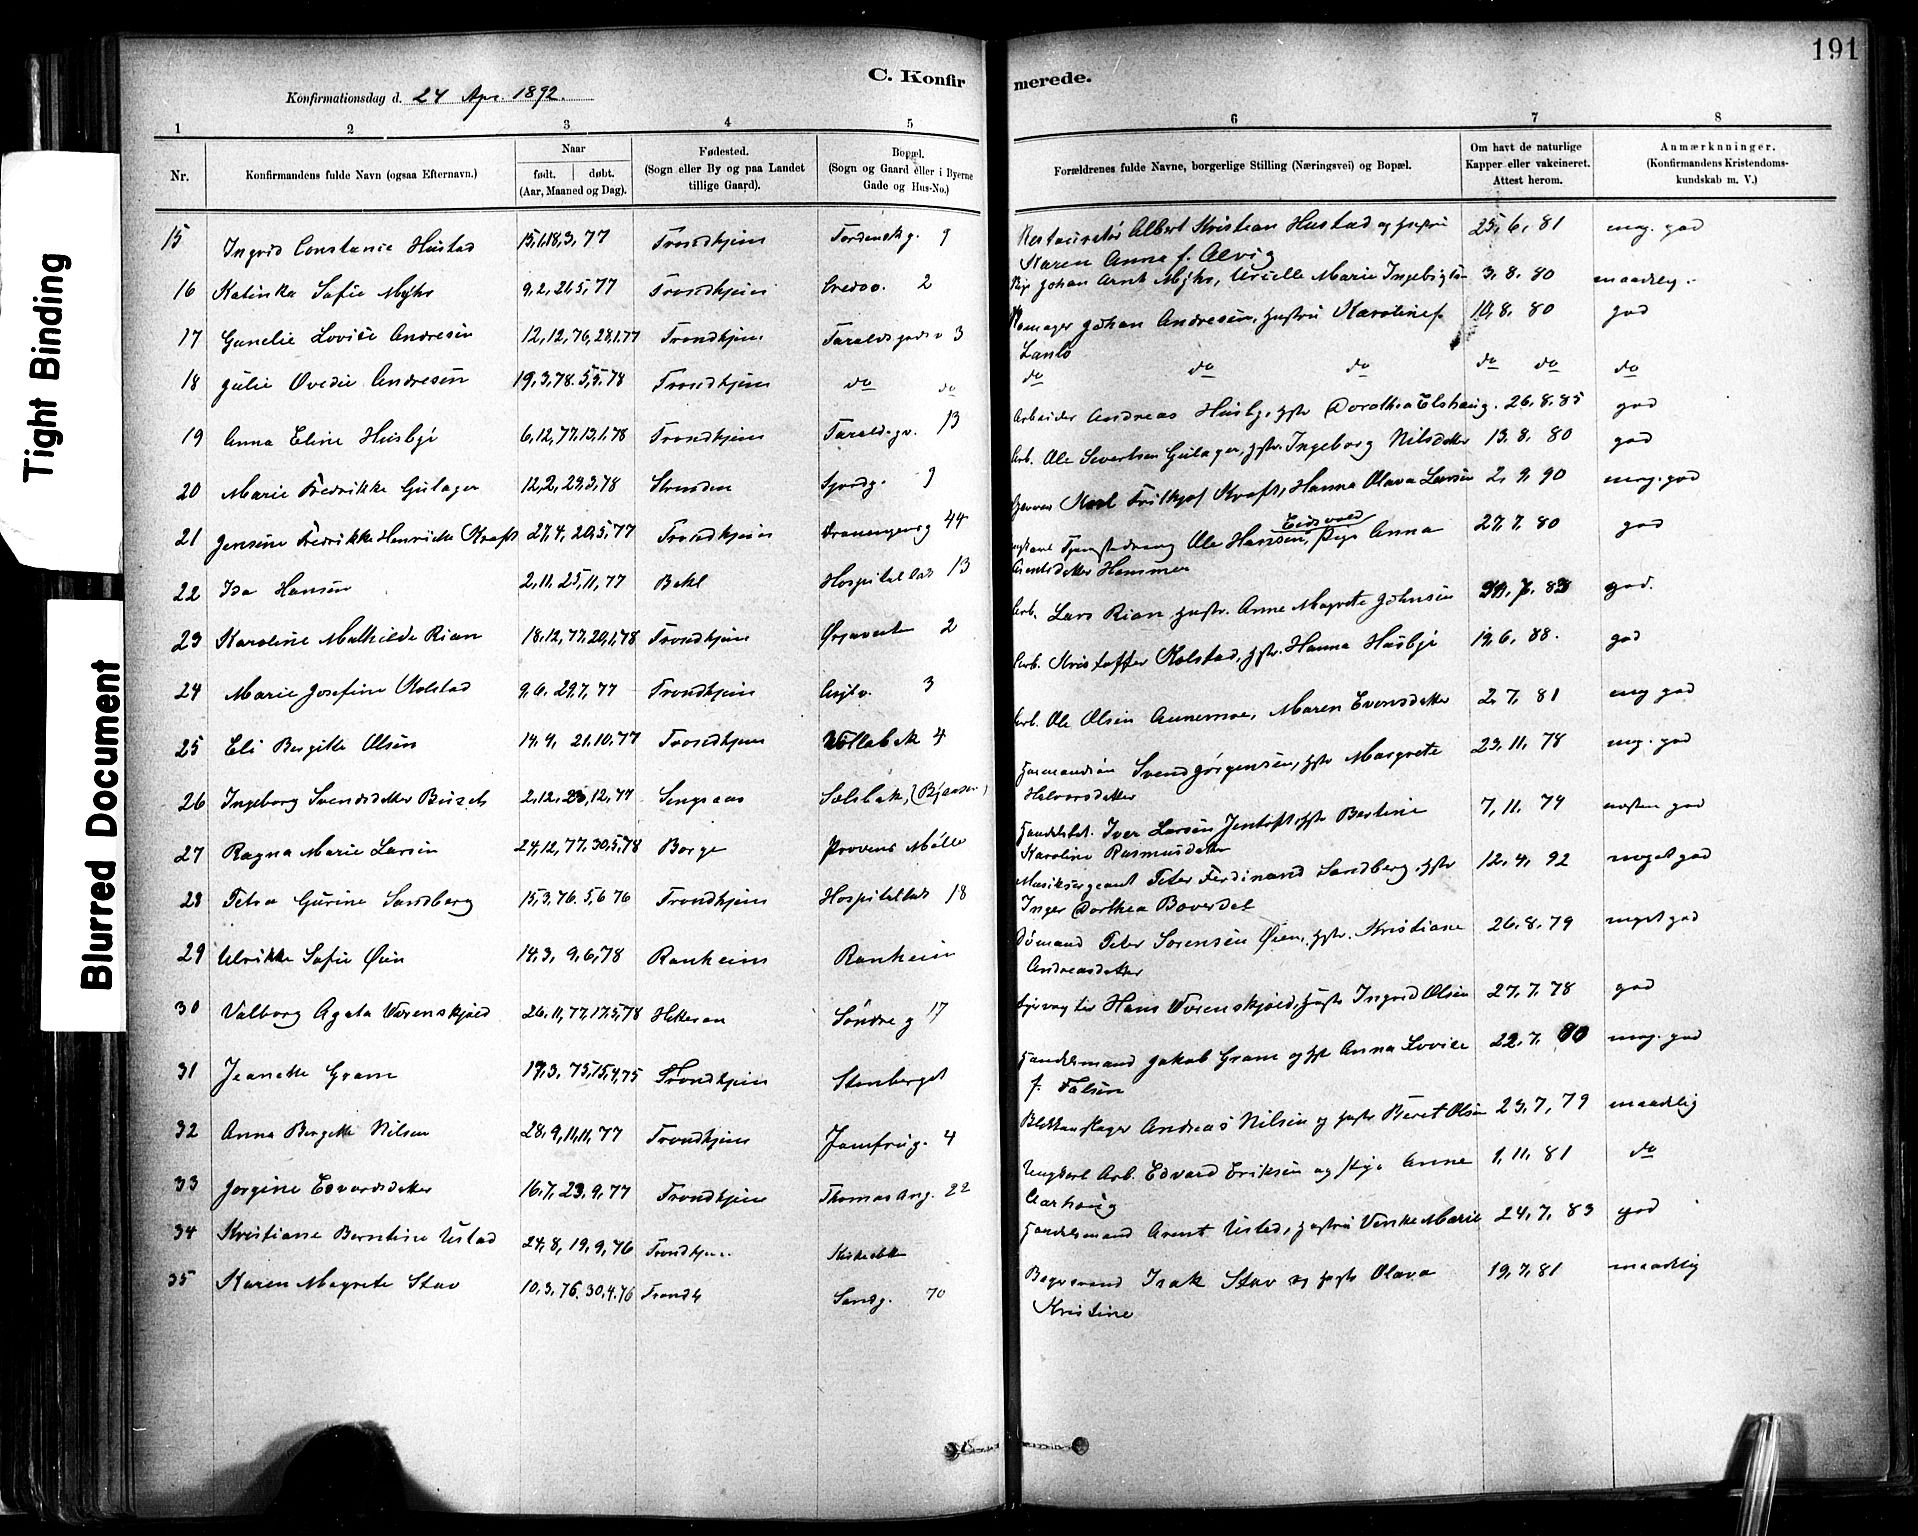 191
C. Konfir merede.
Konfirmationsdag d. 24 Apr. 1892.
Tight Binding
Blurred Document
1 2 3 4 5 6 7 8
Nr.
Konfirmandens fulde Navn (ogsaa Efternavn).
Naar
født. døbt.
(Aar, Maaned og Dag).
Fødested.
(Sogn eller By og paa Landet
tillige Gaard).
Bopæl.
(Sogn og Gaard eller i Byerne
Gade og Hus-No.)
Forældrenes fulde Navne, borgerlige Stilling (Næringsvei) og Bopæl.
Om havt de naturlige
Kapper eller vakcineret.
Attest herom.
Anmærkninger.
(Konfirmandens Kristendoms-
kundskab m. V.)
15 Ingrid Constance Hustad Trondhjem Tordenskg. 9 Albert Kristian Hustad og hustru 25, 6, 81 meg. god
Karen Anna f. Alvig
16 Katinka Sofie Myhr 9, 2, 21, 5, 77 Trondhjem 2 Johan Arnt Myhr, Marie Ingebrigtsen 3, 8, 80 maadelig.
17 Lovise Andresen 12, 12, 76, 28, 1, 77 Trondhjem 3 Johan Andresen, hustru Karoline f. 10, 8, 80 god
18 Julie Ovedie Andresen 19, 3, 78. 5, 5, 78 Trondhjem do do do do do do do do
19 Anna Eline Husbye 6, 12, 77, 13, 1, 78 Trondhjem 13 Arbeider Andreas Husby, hstr Dorothea Elshaug. 26, 8, 85 god
20 Marie Fredrikke Gulager 12, 2, 29, 3, 78 Strinden 9 Arb. Ole Sivertsen Gulager, hstr. Ingeborg Nilsdatter 13, 8, 80 god
21 Jensine Fredrikke Henriette Kraft 27, 4, 20, 5, 77 Trondhjem 44 Karl Frithjof Kraft, Hanna Olava Larsen 2, 9, 90 meg. god
22 Ida Hansen 2, 11, 25, 11, 77 Bakl Hospitalløk 13 Ole Hansen, Eidsvold Pige Anna 27, 7, 80 god
Arntsdatter Hammer
23 Karoline Mathilde Rian 18, 12, 77, 20, 1, 78 Trondhjem 2 Arb. Lars Rian hustr. Anne Magrete Johnsen god.
24 Marie Josefine Kolstad 9, 6, 29, 7, 77 Trondhjem 3 Arb. Kristoffer Kolstad, hstr. Hanna Husbye 19, 6, 88. god
25 Eli Birgitte Olsen 14, 9, 21, 10, 77 Trondhjem 4 Arb. Ole Olsen Aunemoe, Maren Evensdatter 2, 7, 81 meg god
26 Ingeborg Svendsdatter 2, 12, 23, 12, 77 Svend Jørgensen, hstr Margrete 23, 11, 78 meg. god
Halvorsdatter
27 Ragna Marie Larsen 24, 12, 77, 30, 5, 78 Borge Iver Larsen hstr Bertine 7, 11, 79 næsten god
Karoline Rasmusdatter
28 Petra Gurine Sandberg 15, 3, 76. 5, 6 76 Trondhjem Hospitalløk 18 Musiksergeant Peter Ferdinand Sandberg, hstr 12, 4, 92 meget god
Inger Dorthea
29 Ulrikke Sofie Øien 14, 3, 9, 6, 78 Ranheim Ranheim Sømand Peter Sørensen Øien, hstr. Kristiane 26, 8, 79 meget god
Andreasdatter
30 Valborg Agata Værenskjold 26, 11, 77, 17, 5, 78 Hitteren Søndre g 17 Hans Værenskjold, hustr Ingrid Olsen 27, 7, 78 god
31 Jeanette Gram Trondhjem Stenberget Handelsmand Jakob Gram og hst Anna Lovise 22, 7, 80 meg. god
f. Falsen
32 Anna Bergitte Nilsen 28, 9, 11, 11, 77 Trondhjem Jomfrug. 4 Andreas Nilsen og hustr Beret Olsen 23, 7, 79 maadelig
33 Jørgine Edvardsdatter 16, 7, 23, 9, 77 Trondhjem Thomas Ang. 22 Ungkarl Arb. Edvard Eriksen og Pige Anne 1, 11, 81 do
Aarhaug
34 Kristiane Berntine Ustad 24, 8, 19, 9, 76 Trondhjem Handelsmand Arent Ustad, hustru Marie 24, 7, 83 god
35 Karen Magrete Stav 10, 3, 76. 30, 4, 76 Trondh Sandg. 70 Isak Stav og hustr Olava 19, 7, 81 maadelig
Kristine